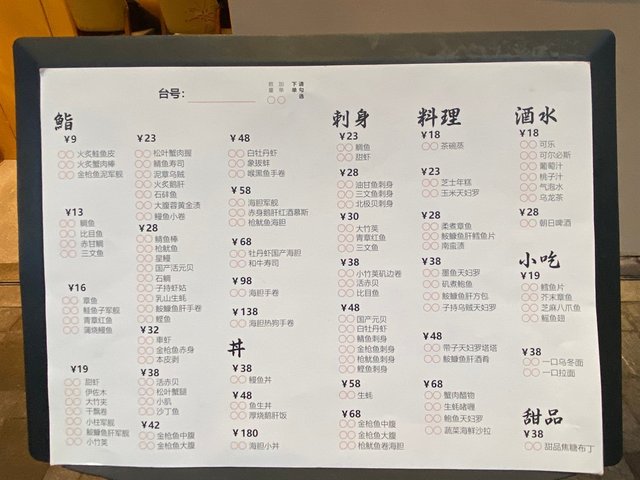 台号：
数量
加单
下单
请勾选
鮨
¥9
火炙鲑鱼皮
火炙蟹肉棒
金枪鱼泥军舰
¥13
鲷鱼
比目鱼
赤甘鲷
三文鱼
¥16
章鱼
鲑鱼子军舰
青章红鱼
蒲烧鳗鱼
¥19
甜虾
伊佐木
大竹荚
干瓢卷
小柱军舰
鮟鱇鱼肝军舰
小竹荚
¥23
松叶蟹肉握
鲭鱼寿司
泥章乌贼
火炙鹅肝
石垰鱼
大腹蓉黄金渍
鳗鱼小卷
¥28
鲭鱼棒
枪鱿鱼
星鳗
国产活元贝
石鲷
子持虾姑
乳山生蚝
鮟鱇鱼肝手卷
鲣鱼
¥32
车虾
金枪鱼赤身
本皮剥
¥38
活赤贝
松叶蟹腿
小肌
沙丁鱼
¥42
金枪鱼中腹
金枪鱼大腹
¥48
白牡丹虾
象拔蚌
喉黑鱼手卷
¥58
海胆军舰
赤身鹅肝红酒慕斯
枪鱿鱼海胆
¥68
牡丹虾国产海胆
和牛寿司
¥98
海胆手卷
¥138
海胆热狗手卷
丼
¥38
鳗鱼丼
¥48
鱼生丼
厚烧鹅肝饭
¥180
海胆小丼
刺身
¥23
鲷鱼
甜虾
¥28
油甘鱼刺身
三文鱼刺身
北极贝刺身
¥30
大竹荚
青章红鱼
三文鱼
¥38
小竹荚矶边卷
活赤贝
比目鱼
¥48
国产元贝
白牡丹虾
鲭鱼刺身
金枪鱼刺身
枪鱿鱼刺身
鲣鱼刺身
¥58
生蚝
¥68
金枪鱼中腹
金枪鱼大腹
枪鱿鱼卷海胆
料理
¥18
茶碗蒸
¥23
芝士年糕
玉米天妇罗
¥28
柔煮章鱼
鮟鱇鱼肝鳕鱼片
南蛮渍
¥38
墨鱼天妇罗
矶煮鲍鱼
鮟鱇鱼肝方包
子持乌贼天妇罗
¥48
带子天妇罗塔塔
鮟鱇鱼肝酒肴
¥68
蟹肉醋物
生蚝啫喱
鲍鱼天妇罗
蔬菜海鲜沙拉
酒水
¥18
可乐
可尔必斯
葡萄汁
桃子汁
气泡水
乌龙茶
¥28
朝日啤酒
小吃
¥19
鳕鱼片
芥末章鱼
芝麻八爪鱼
鳐鱼翅
¥38
一口乌冬面
一口拉面
甜品
¥38
甜品焦糖布丁